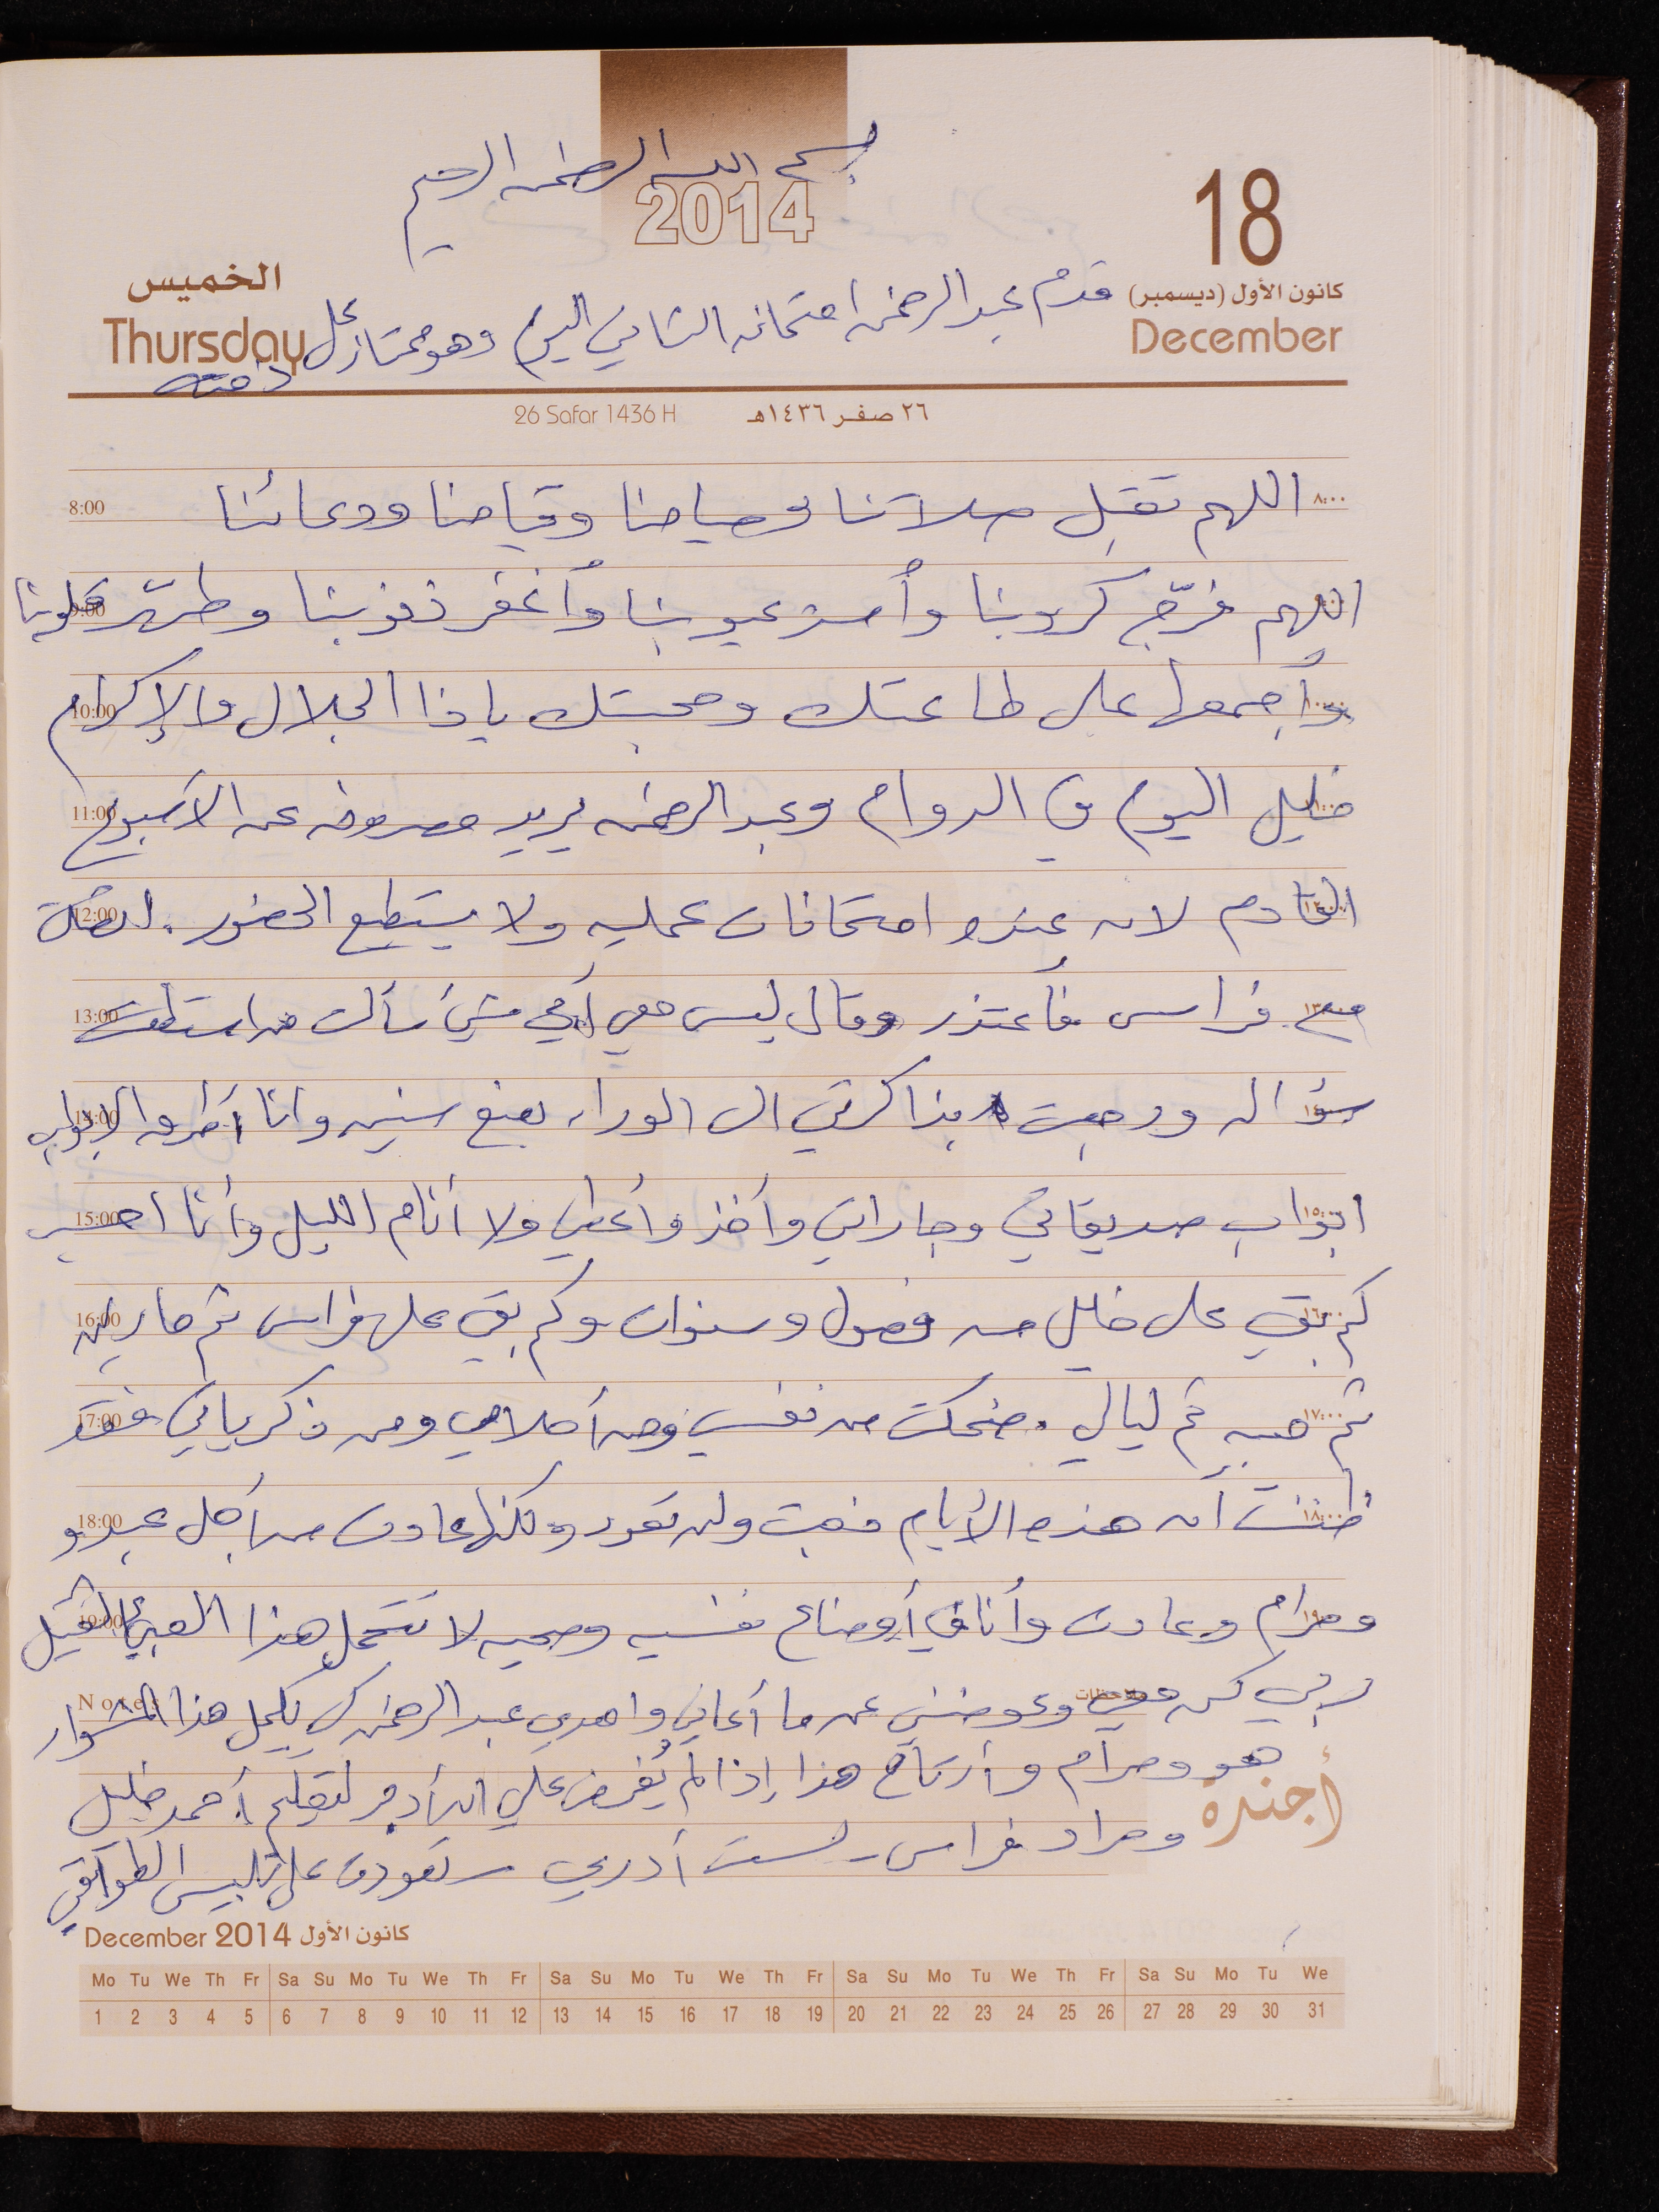 بسم الله الرحمن الرحيم
2014
18
كانون الأول (ديسمبر)
December
الخميس
Thursday
قدم عبد الرحمن امتحانه الثاني اليوم وهو ممتاز على
ذمته
26 Safar 1436 H ٢٦ صفر ١٤٣٦هـ
٨:٠٠ اللهم تقبل صلاتنا وصيامنا وقيامنا ودعائنا 8:00
اللهم فرّج كروبنا وأستر عيوبنا وأغفر ذنوبنا وطهّر قلوبنا 9:00
وأجمعها على طاعتك ومحبتك ياذا الجلال والإكرام 10:00
خليل اليوم في الدوام وعبد الرحمن يريد مصروفه عن الأسبوع 11:00
القادم لانه عنده امتحانات عمليه ولا يستطيع الحضور. 12:00
مع فراس فأعتذر وقال ليس معي أي شيء سألت من استطعت 13:00
سؤاله ورجعت بذاكرتي الى الوراء بضع سنين وانا أطرق الابواب 14:00
ابواب صديقاتي وجاراتي وأخذ وأعطي ولا أنام الليل وأنا احسب 15:00
كم بقي على خليل من فصول وسنوات وكم بقي على فراس ثم 16:00
ثم هبه ثم ليالي. ضحكت من نفسي ومن أحلامي ومن ذكرياتي فقد 17:00
١٨:٠٠ ظننت أن هذه الأيام ذهبت ولن تعود ولكنها عادت من أجل عبدو 18:00
ومرام وعادت وأنا في أوضاع نفسيه وصحيه لا تتحمل هذا العبئ الثقيل 19:00
ربي كن معي وعوضني عن ما أعاني واهدي عبد الرحمن كي يكمل هذا المشوار
ملاحظات Notes
هو ومرام وأرتاح هذا إذا لم يُفرض علي ان أدفع لتعليم أحمد خليل
أجندة
ومراد فراس لست أدري ستعودت على تلبيس الطواقي
December 2014 كانون الأول
Mo Tu We Th Fr Sa Su Mo Tu We Th Fr Sa Su Mo Tu We Th Fr Sa Su Mo Tu We Th Fr Sa Su Mo Tu We
1 2 3 4 5 6 7 8 9 10 11 12 13 14 15 16 17 18 19 20 21 22 23 24 25 26 27 28 29 30 31